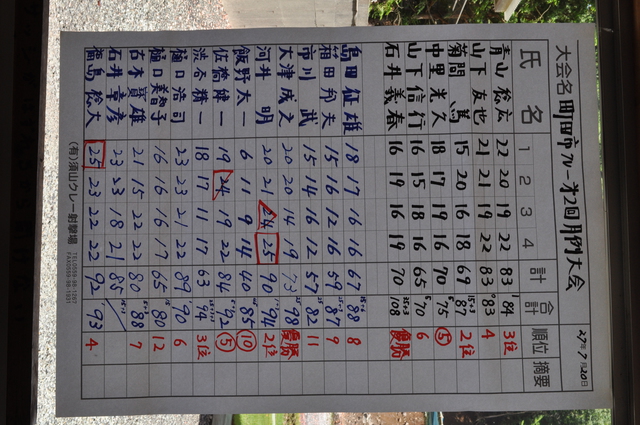 27年7月20日
大会名 町田市クレー第2回月例大会
氏名 1 2 3 4 計 合計 順位 摘要
青山 総広 22 20 19 22 83 84 3位
山下 友也 21 21 19 22 83 83 4
菊間 篤 15 20 16 18 69 87 2位
中里 光久 18 17 19 16 70 75 5
山下 信行 16 15 18 16 65 70 6
石井 義春 16 19 16 19 70 108 優勝
島田 征雄 18 17 16 16 67 88 8
稲田 邦夫 15 16 12 16 59 87 9
市川 武 15 14 16 12 57 82 11
大津 成之 20 20 14 19 73 98 優勝
河井 明 20 21 24 25 90 94 2位
飯野 大一 6 11 9 14 40 88 10
佐橋 健一 19 24 19 22 84 92 5
渋谷 精一 18 17 11 17 63 94 3位
樋口 浩司 23 23 21 22 89 90 6
樋口 美知子 16 16 16 17 65 80 12
古木 實雄 21 15 22 22 80 88 7
石井 章彦 23 23 18 21 85
福島 総大 25 23 22 22 92 93 4
(有)須山クレー射撃場 TEL0559-98-1207
FAX0559-98-1931